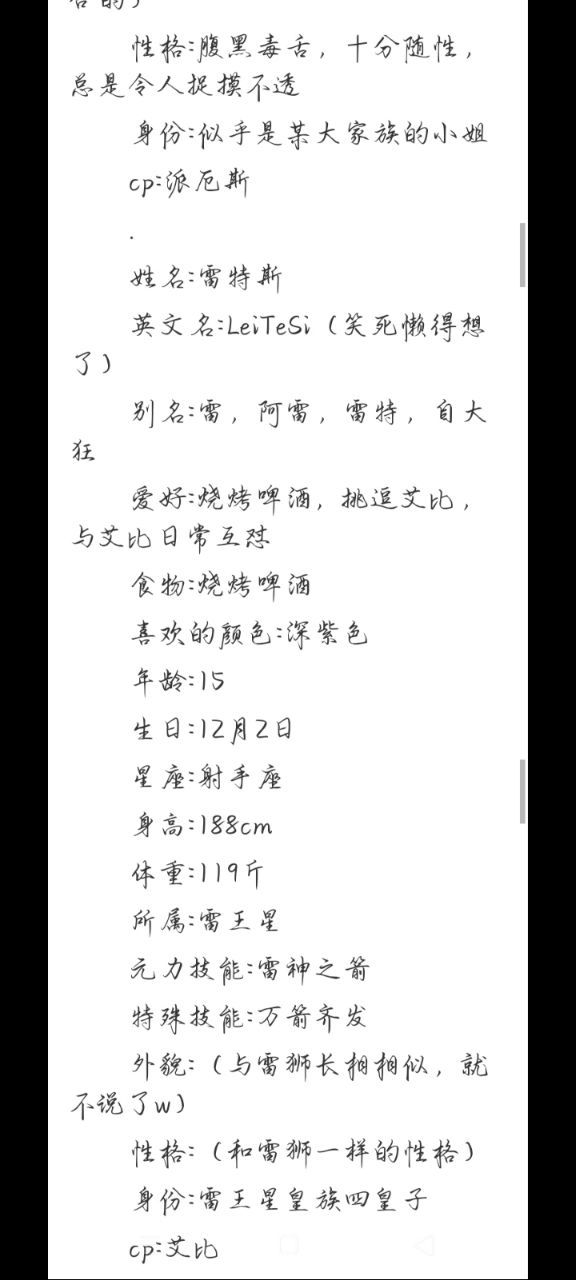 性格:腹黑毒舌，十分随性，
总是令人捉摸不透
身份:似乎是某大家族的小姐
cp:派厄斯
.
姓名:雷特斯
英文名:LeiTeSi（笑死懒得想
了）
别名:雷，阿雷，雷特，自大
狂
爱好:烧烤啤酒，挑逗艾比，
与艾比日常互怼
食物:烧烤啤酒
喜欢的颜色:深紫色
年龄:15
生日:12月2日
星座:射手座
身高:188cm
体重:119斤
所属:雷王星
元力技能:雷神之箭
特殊技能:万箭齐发
外貌:（与雷狮长相相似，就
不说了w）
性格:（和雷狮一样的性格）
身份:雷王星皇族四皇子
cp:艾比